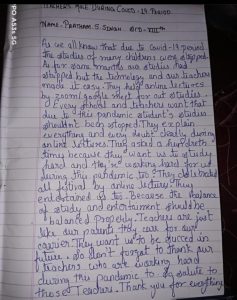 TEACHERS ROLE DURING COVID-19 PERIOD
NAME- PRATHAM. S. SINGH. STD-VIIIth
As we all know that due to Covid-19 period
the studies of many children were stopped.
As for some months our studies had
stopped but the technology and our teachers
made it easy. They help online lectures
by zoom/google meet for our studies.
Every school and teachers want that
due to this pandemic student's studies
shouldn't been stopped. They explain
everything and every doubt clearly during
online lectures. They asked a hundreth
times because they want us to study
hard and they're working hard for us
during this pandemic too. They celebrated
all festival by online lecture. They
entertained us too. Because the balance
of study and entertainment should be
balanced properly. Teachers are just
like our parents they care for our
carrier. They want us to be succeed in
future. So don't forget to thank our
teachers who are working hard
during this pandemic to. So salute to
those Teachers. Thank you for everything